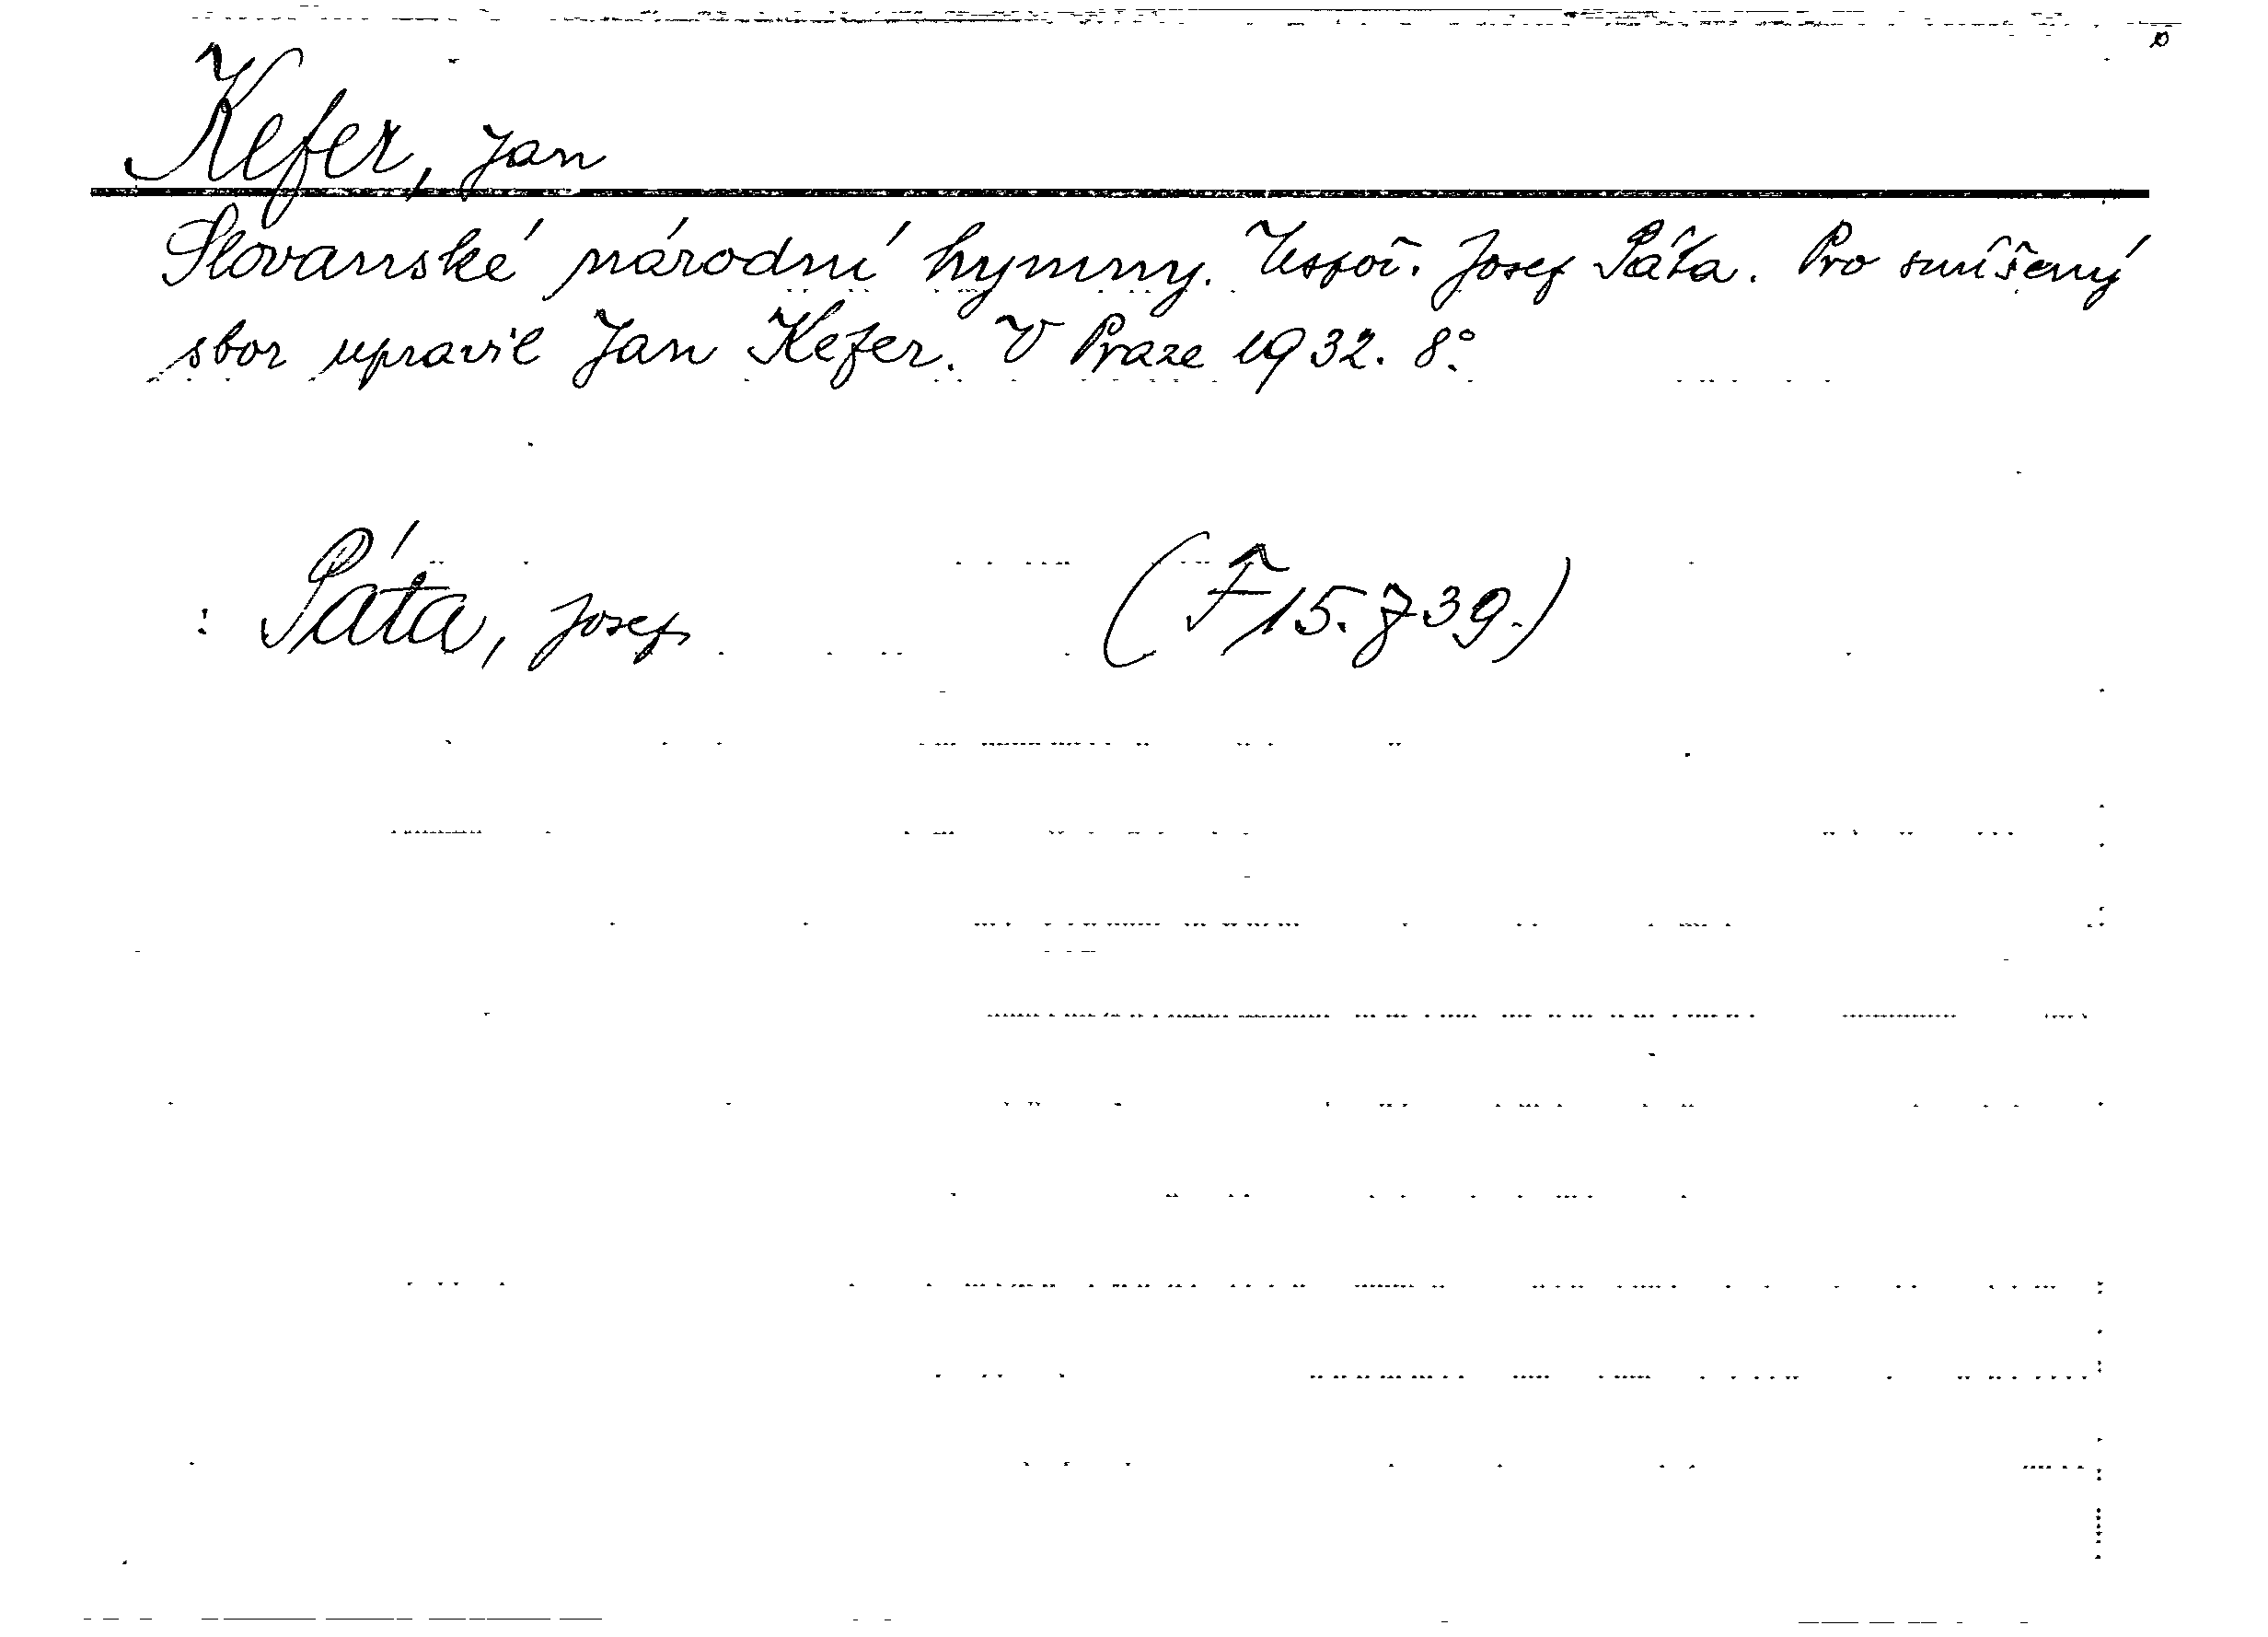 Kefer, Jan
Slovanské národní hymny. Uspoř. Josef Páta. Pro smíšený
sbor upravil Jan Kefer. V Praze 1932. 8°.
: Páta, Josef (F15.739.)